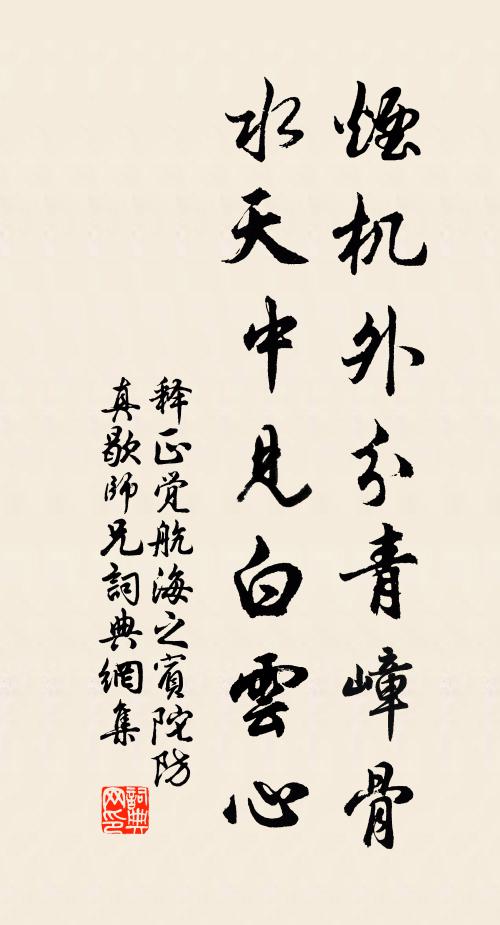 煙机外分青嶂骨
水天中見白雲心
释正觉航海之賓陀防
真歇師兄詞典網集
詞典网印